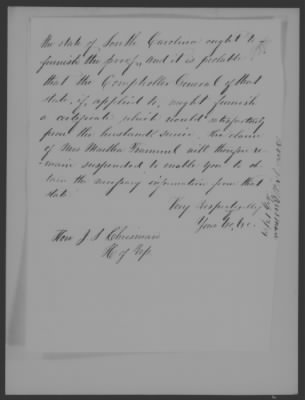 the state of South Carolina ought to
furnish the proof, and it is probable
that the Comptroller General of that
state, if applied to, might furnish
a certificate which would satisfactorily
prove the husband's service. The claim
of Mrs Martha Trammel will therefore re-
main suspended to enable you to ob-
tain the necessary information from that
state.
Very respectfully
Your Ob. Sr.
Hon J. S. Chrisman
H of Rep.